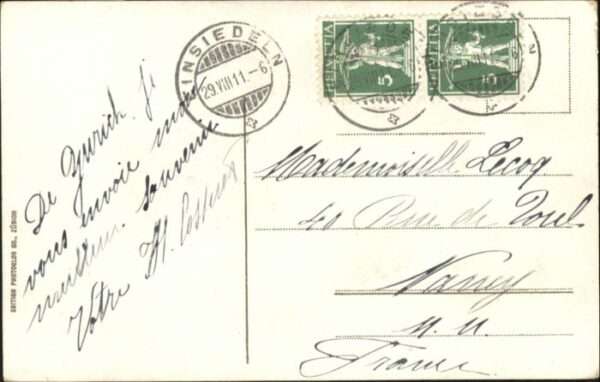 EINSIEDELN
29.VIII.11.-6
HELVETIA 5
HELVETIA 5
De Zurich, je
vous envoie mon
meilleur souvenir
Votre H.
Mademoiselle Lecoq
40 Rue de Toul
Nancy
M. M.
France
EDITION PHOTOGLOB CO., ZÜRICH